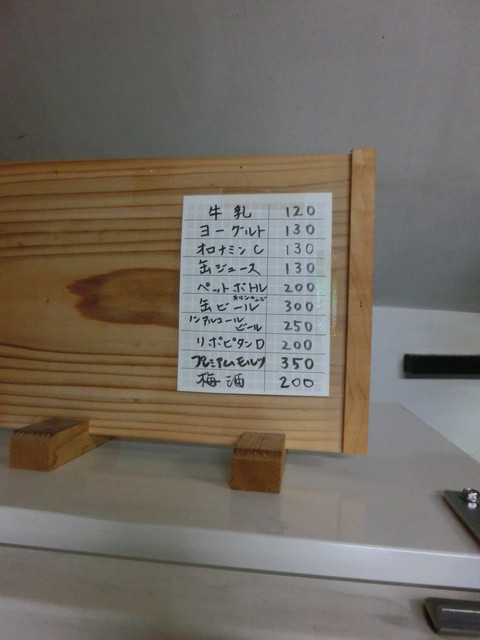 牛乳 120
ヨーグルト 130
オロナミンC 130
缶ジュース 130
ペットボトル 200
缶ビール 300
ノンアルコールビール 250
リポビタンD 200
プレミアムモルツ 350
梅酒 200